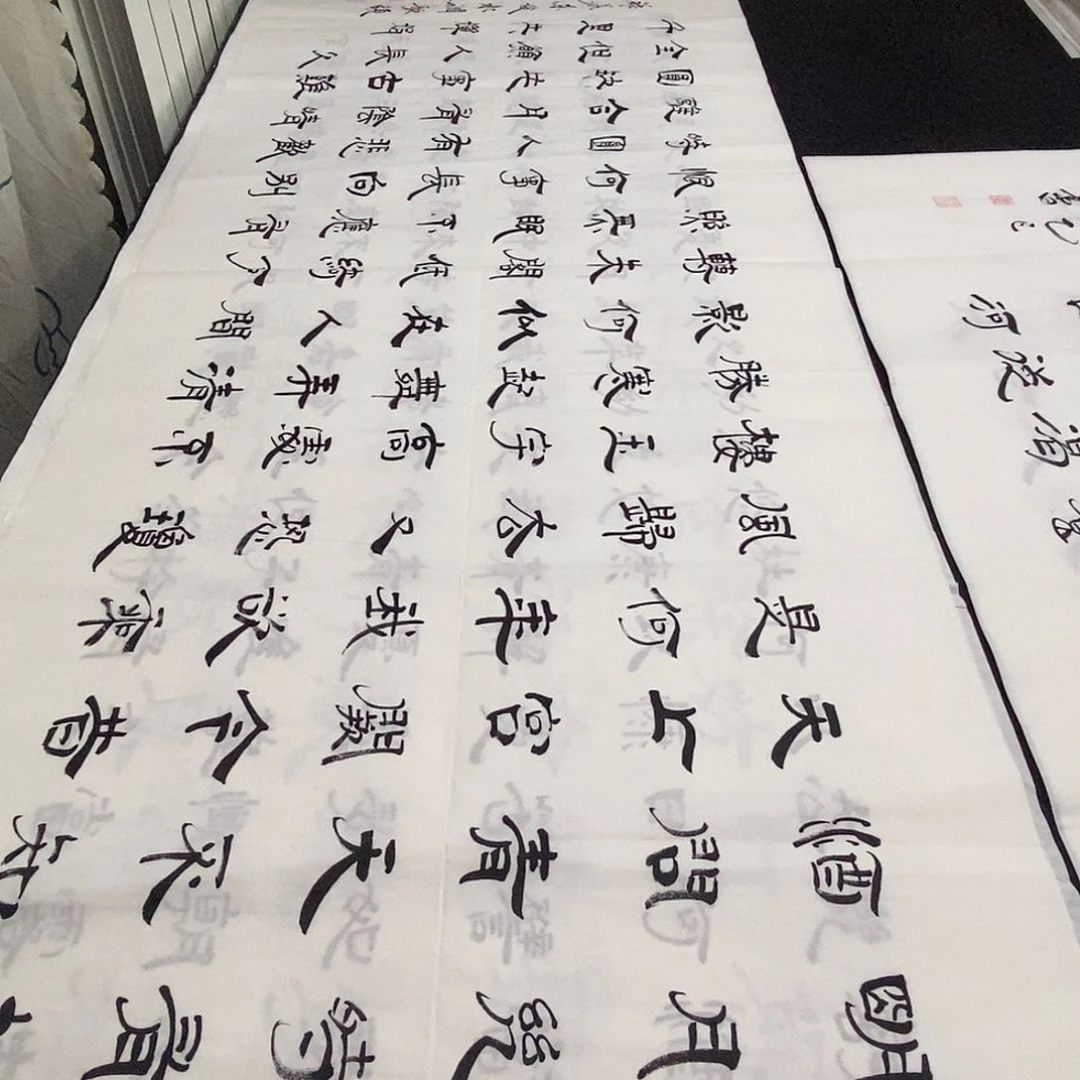 明月幾時有把
酒問青天不知
天上宮闕今昔
是何年我欲乘
風歸去又恐瓊
樓玉宇高處不
勝寒起舞弄清
影何似在人間
轉朱閣低綺戶
照無眠不應有
恨何事長向別
時圓人有悲歡
離合月有陰晴
圓缺此事古難
全但願人長久
千里共嬋娟
河
書